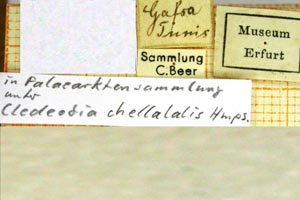 Gafsa
Tunis
Sammlung
C.Beer
Museum
Erfurt
in Palaearktensammlung
unter
Cledeobia chellalalis Hmps.